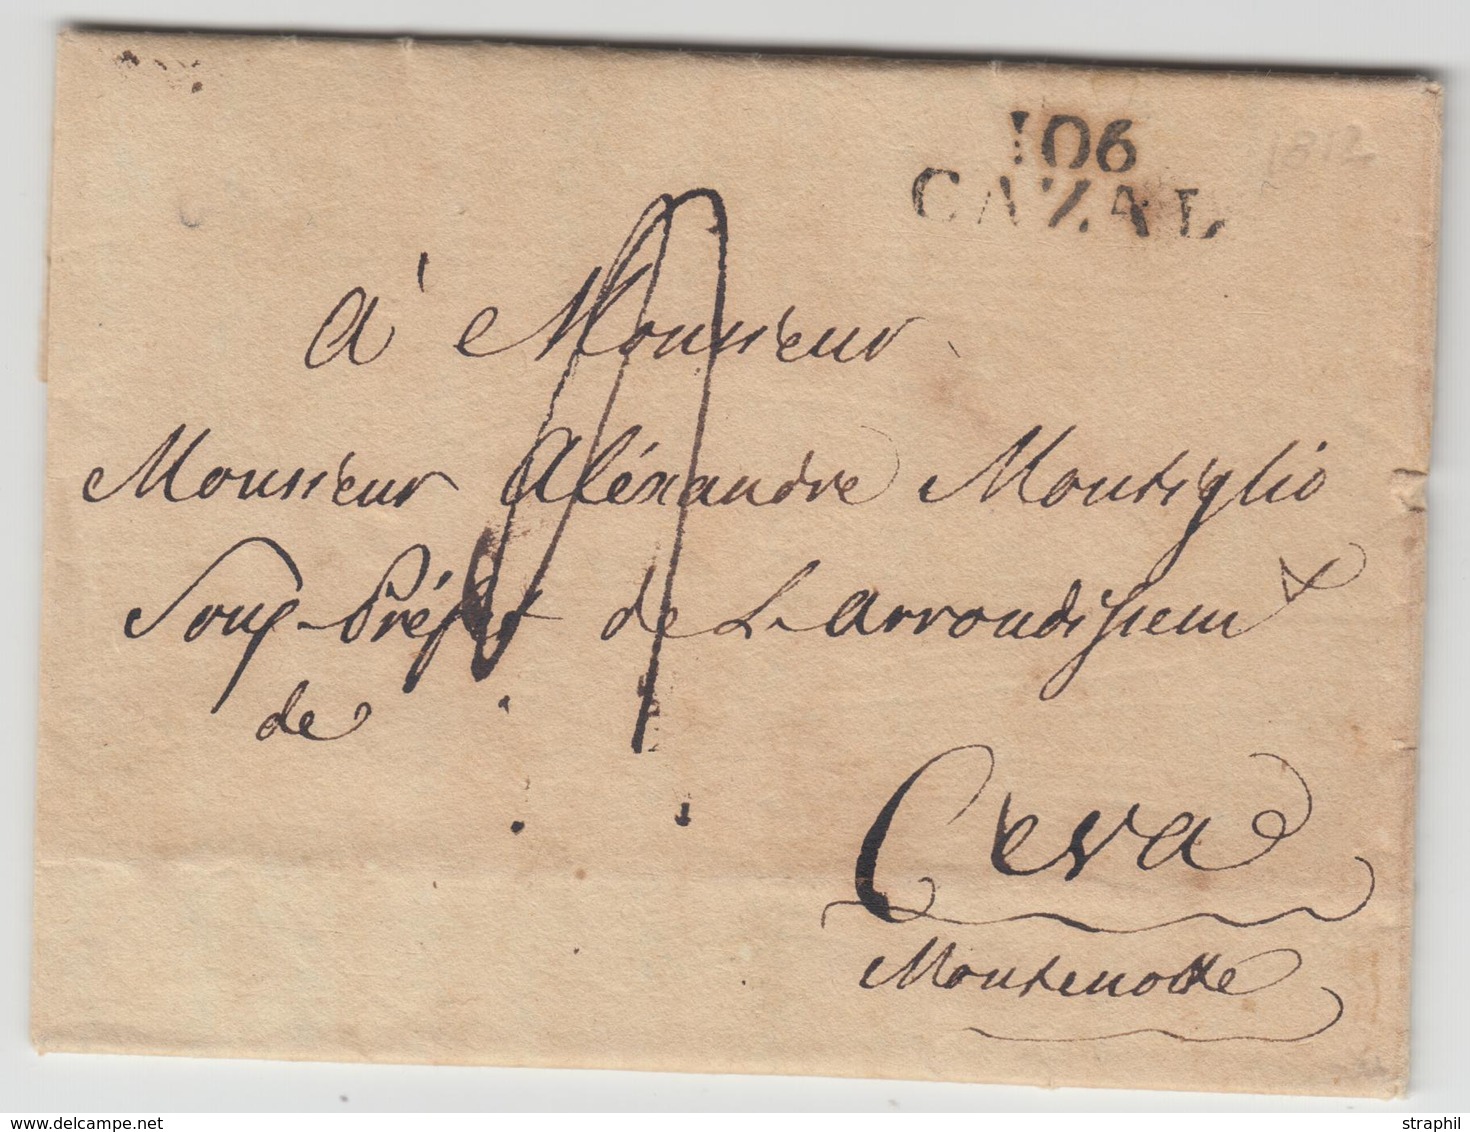 106
CAZAL
1812
à Monsieur
Monsieur Aléxandre Montiglio
Sous-Préfet de L'arrondissement
de
Ceva
Montenotte
delcampe.net
straphil